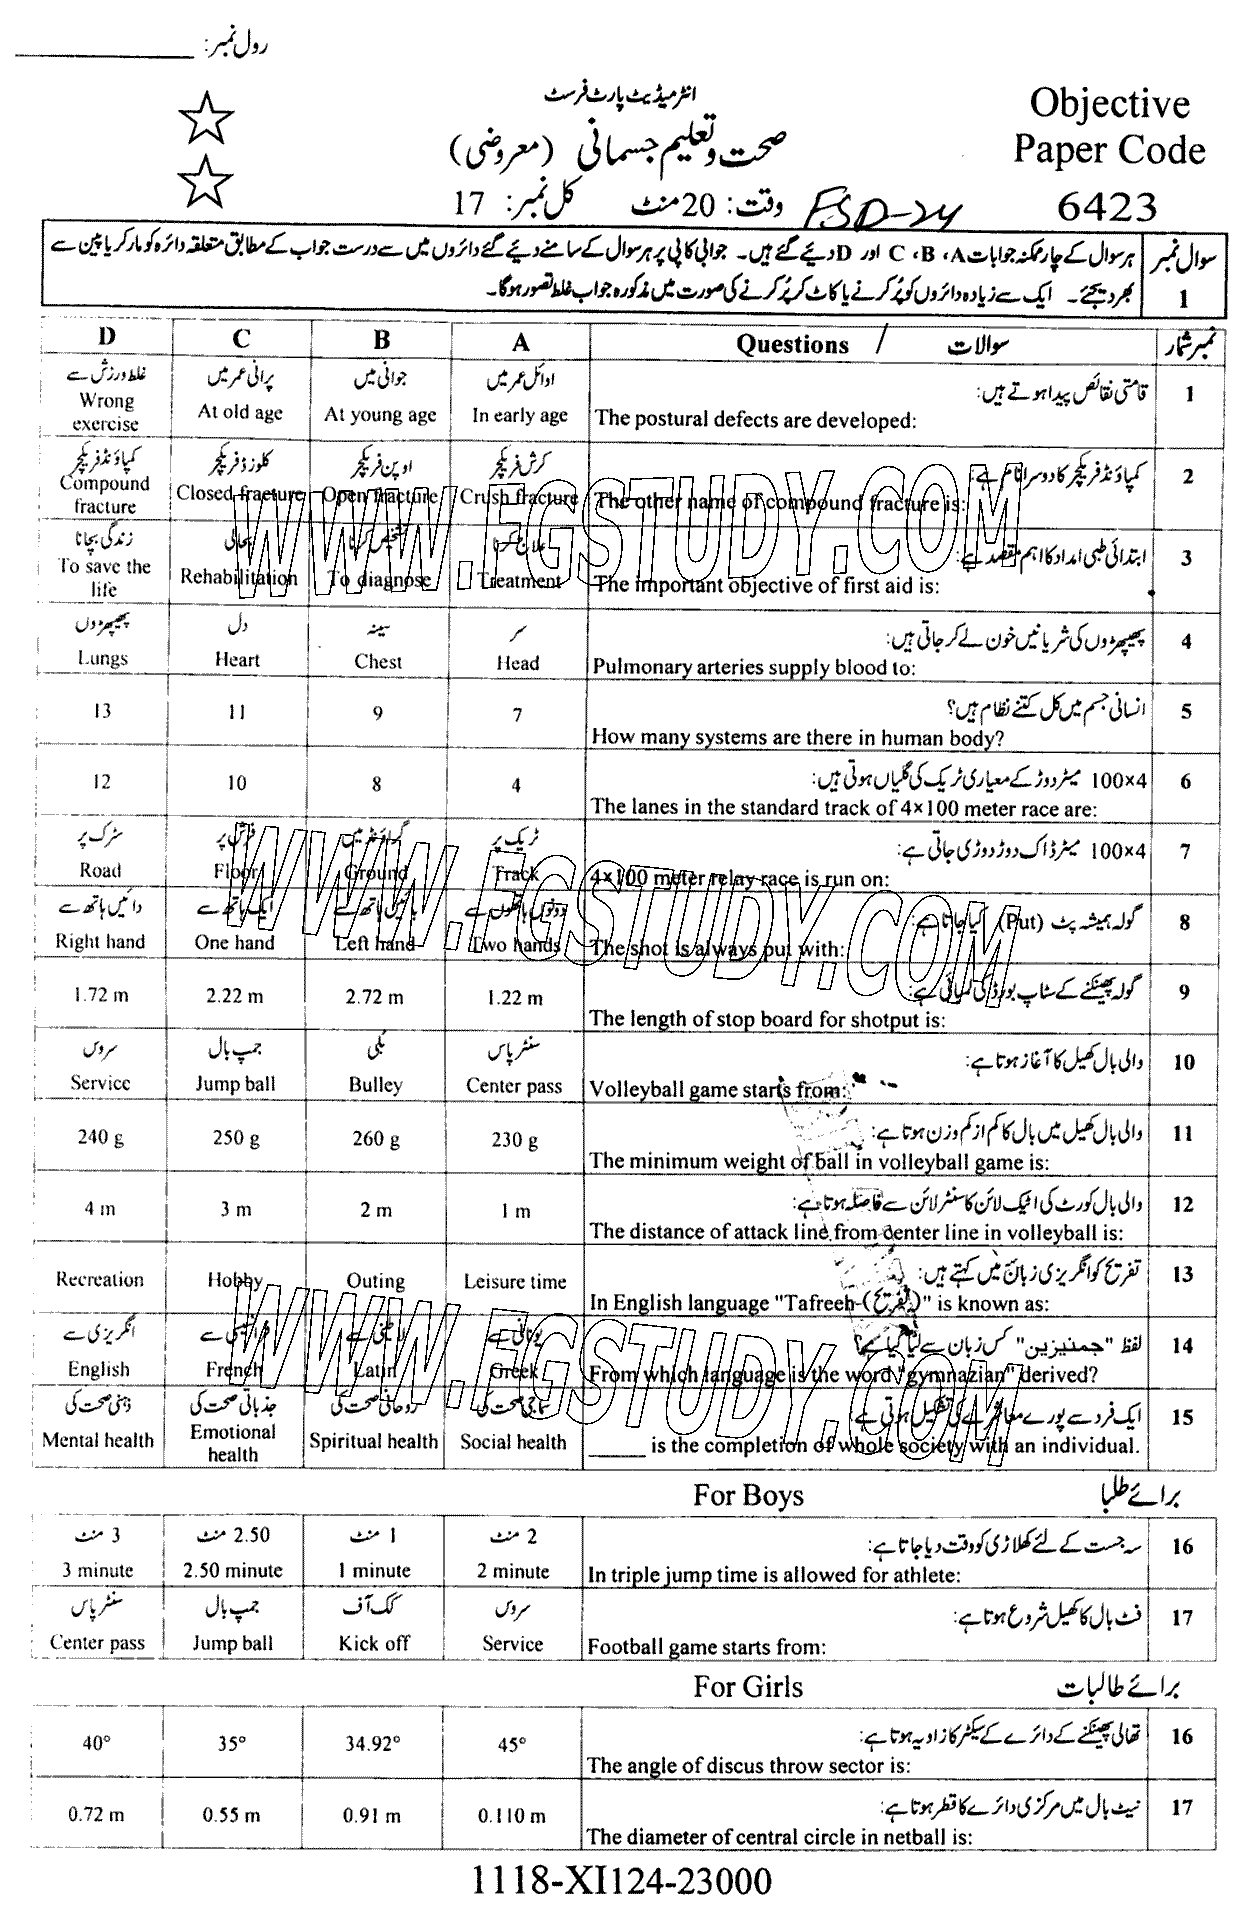 رول نمبر: ____________
انٹرمیڈیٹ پارٹ فرسٹ
Objective
صحت و تعلیم جسمانی (معروضی)
Paper Code
وقت: 20 منٹ کل نمبر: 17
FSD-24
6423
سوال نمبر 1
ہر سوال کے چار ممکنہ جوابات A، B، C اور D دیئے گئے ہیں۔ جوابی کاپی پر ہر سوال کے سامنے دیے گئے دائروں میں سے درست جواب کے مطابق متعلقہ دائرہ کو مارکر یا پین سے
بھر دیجئے۔ ایک سے زیادہ دائروں کو پُر کرنے یا کاٹ کر پُر کرنے کی صورت میں مذکورہ جواب غلط تصور ہوگا۔
D C B A Questions / سوالات نمبر شمار
غلط ورزش سے پرانی عمر میں جوانی میں اوائل عمر میں قامتی نقائص پیدا ہوتے ہیں: 1
Wrong exercise At old age At young age In early age The postural defects are developed:
کمپاؤنڈ فریکچر کلوزڈ فریکچر اوپن فریکچر کرش فریکچر کمپاؤنڈ فریکچر کا دوسرا نام ہے: 2
Compound fracture Closed fracture Open fracture Crush fracture The other name of compound fracture is:
زندگی بچانا بحالی تشخیص کرنا علاج کرنا ابتدائی طبی امداد کا اہم مقصد ہے: 3
To save the life Rehabilitation To diagnose Treatment The important objective of first aid is:
پھیپھڑوں دل سینہ سر پھیپھڑوں کی شریانیں خون لے کر جاتی ہیں: 4
Lungs Heart Chest Head Pulmonary arteries supply blood to:
13 11 9 7 انسانی جسم میں کل کتنے نظام ہیں؟ 5
How many systems are there in human body?
12 10 8 4 100×4 میٹر دوڑ کے معیاری ٹریک کی گلیاں ہوتی ہیں: 6
The lanes in the standard track of 4×100 meter race are:
سڑک پر فرش پر گراؤنڈ میں ٹریک پر 100×4 میٹر ڈاک دوڑ دوڑی جاتی ہے: 7
Road Floor Ground Track 4×100 meter relay race is run on:
دائیں ہاتھ سے ایک ہاتھ سے بائیں ہاتھ سے دونوں ہاتھوں سے گولہ ہمیشہ پٹ (Put) کیا جاتا ہے: 8
Right hand One hand Left hand Two hands The shot is always put with:
1.72 m 2.22 m 2.72 m 1.22 m گولہ پھینکنے کے سٹاپ بورڈ کی لمبائی ہے: 9
The length of stop board for shotput is:
سروس جمپ بال بُلی سنٹر پاس والی بال کھیل کا آغاز ہوتا ہے: 10
Service Jump ball Bulley Center pass Volleyball game starts from:
240 g 250 g 260 g 230 g والی بال کھیل میں بال کا کم از کم وزن ہوتا ہے: 11
The minimum weight of ball in volleyball game is:
4 m 3 m 2 m 1 m والی بال کورٹ کی اٹیک لائن کا سنٹر لائن سے فاصلہ ہوتا ہے: 12
The distance of attack line from center line in volleyball is:
Recreation Hobby Outing Leisure time تفریح کو انگریزی زبان میں کہتے ہیں: 13
In English language "Tafreeh-(تفریح)" is known as:
انگریزی سے فرانسیسی سے لاطینی سے یونانی سے لفظ "جمنیزین" کس زبان سے لیا گیا ہے؟ 14
English French Latin Greek From which language is the word "gymnazian" derived?
ذہنی صحت کی جذباتی صحت کی روحانی صحت کی سماجی صحت کی ایک فرد سے پورے معاشرے کی تشکیل ہوتی ہے: 15
Mental health Emotional health Spiritual health Social health _____ is the completion of whole society with an individual.
For Boys برائے طلبا
3 منٹ 2.50 منٹ 1 منٹ 2 منٹ سہ جست کے لئے کھلاڑی کو وقت دیا جاتا ہے: 16
3 minute 2.50 minute 1 minute 2 minute In triple jump time is allowed for athlete:
سنٹر پاس جمپ بال کک آف سروس فٹ بال کا کھیل شروع ہوتا ہے: 17
Center pass Jump ball Kick off Service Football game starts from:
For Girls برائے طالبات
40° 35° 34.92° 45° تھالی پھینکنے کے دائرے کے سیکٹر کا زاویہ ہوتا ہے: 16
The angle of discus throw sector is:
0.72 m 0.55 m 0.91 m 0.110 m نیٹ بال میں مرکزی دائرے کا قطر ہوتا ہے: 17
The diameter of central circle in netball is:
1118-XI124-23000
WWW.FGSTUDY.COM
WWW.FGSTUDY.COM
WWW.FGSTUDY.COM